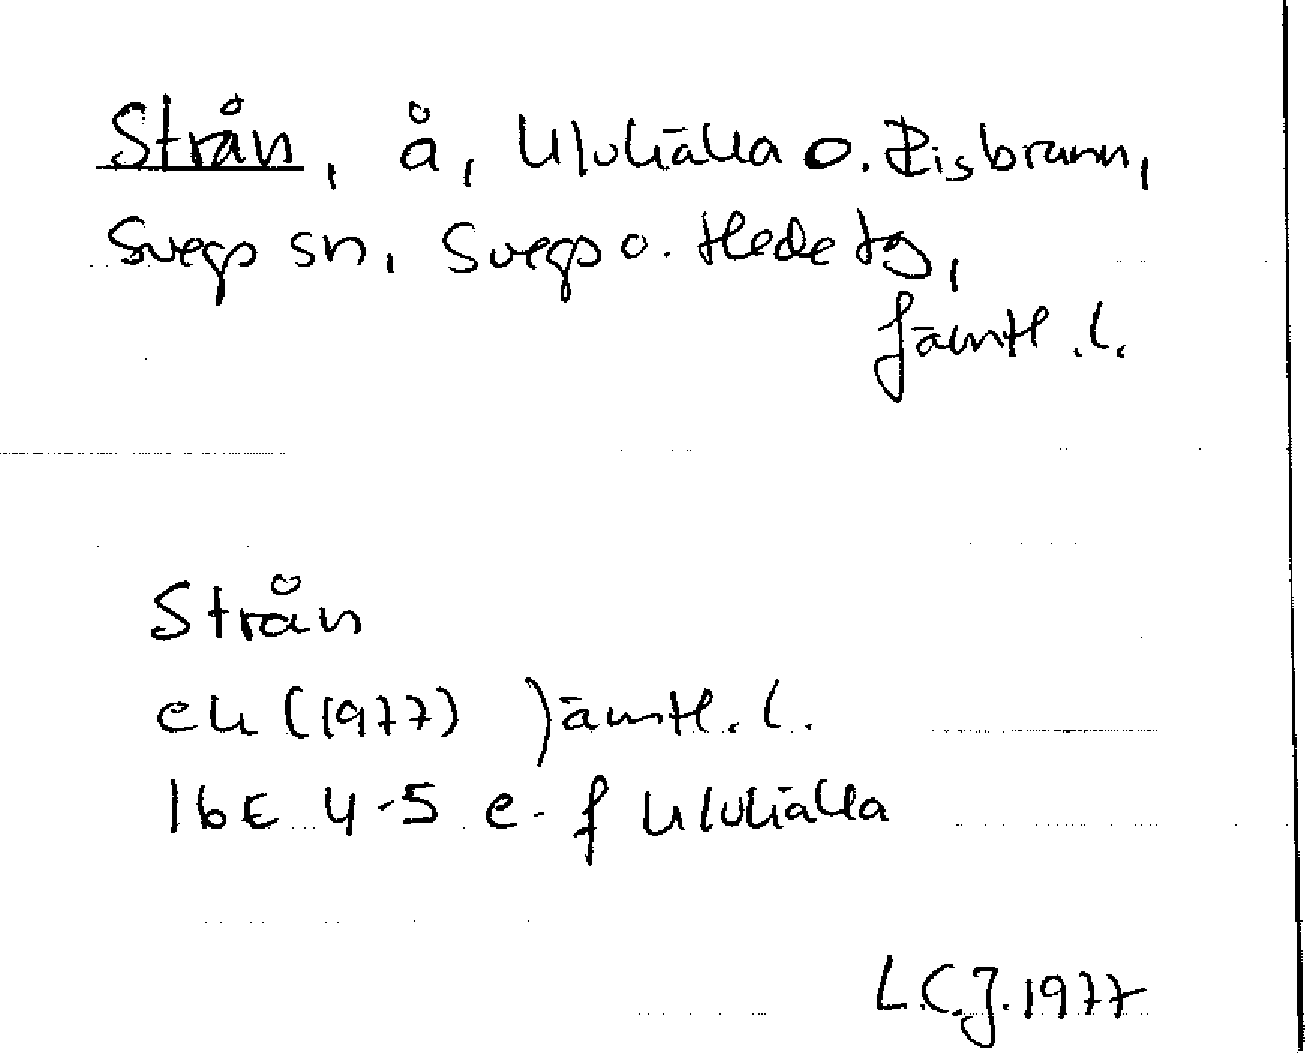 Strån, å, Ulvkälla o. Risbrunn,
Svegs sn, Svegs o. Hede tg,
Jämtl. l.
Strån
ek (1977) Jämtl. l.
16E 4-5 e-f Ulvkälla
L.C.J. 1977